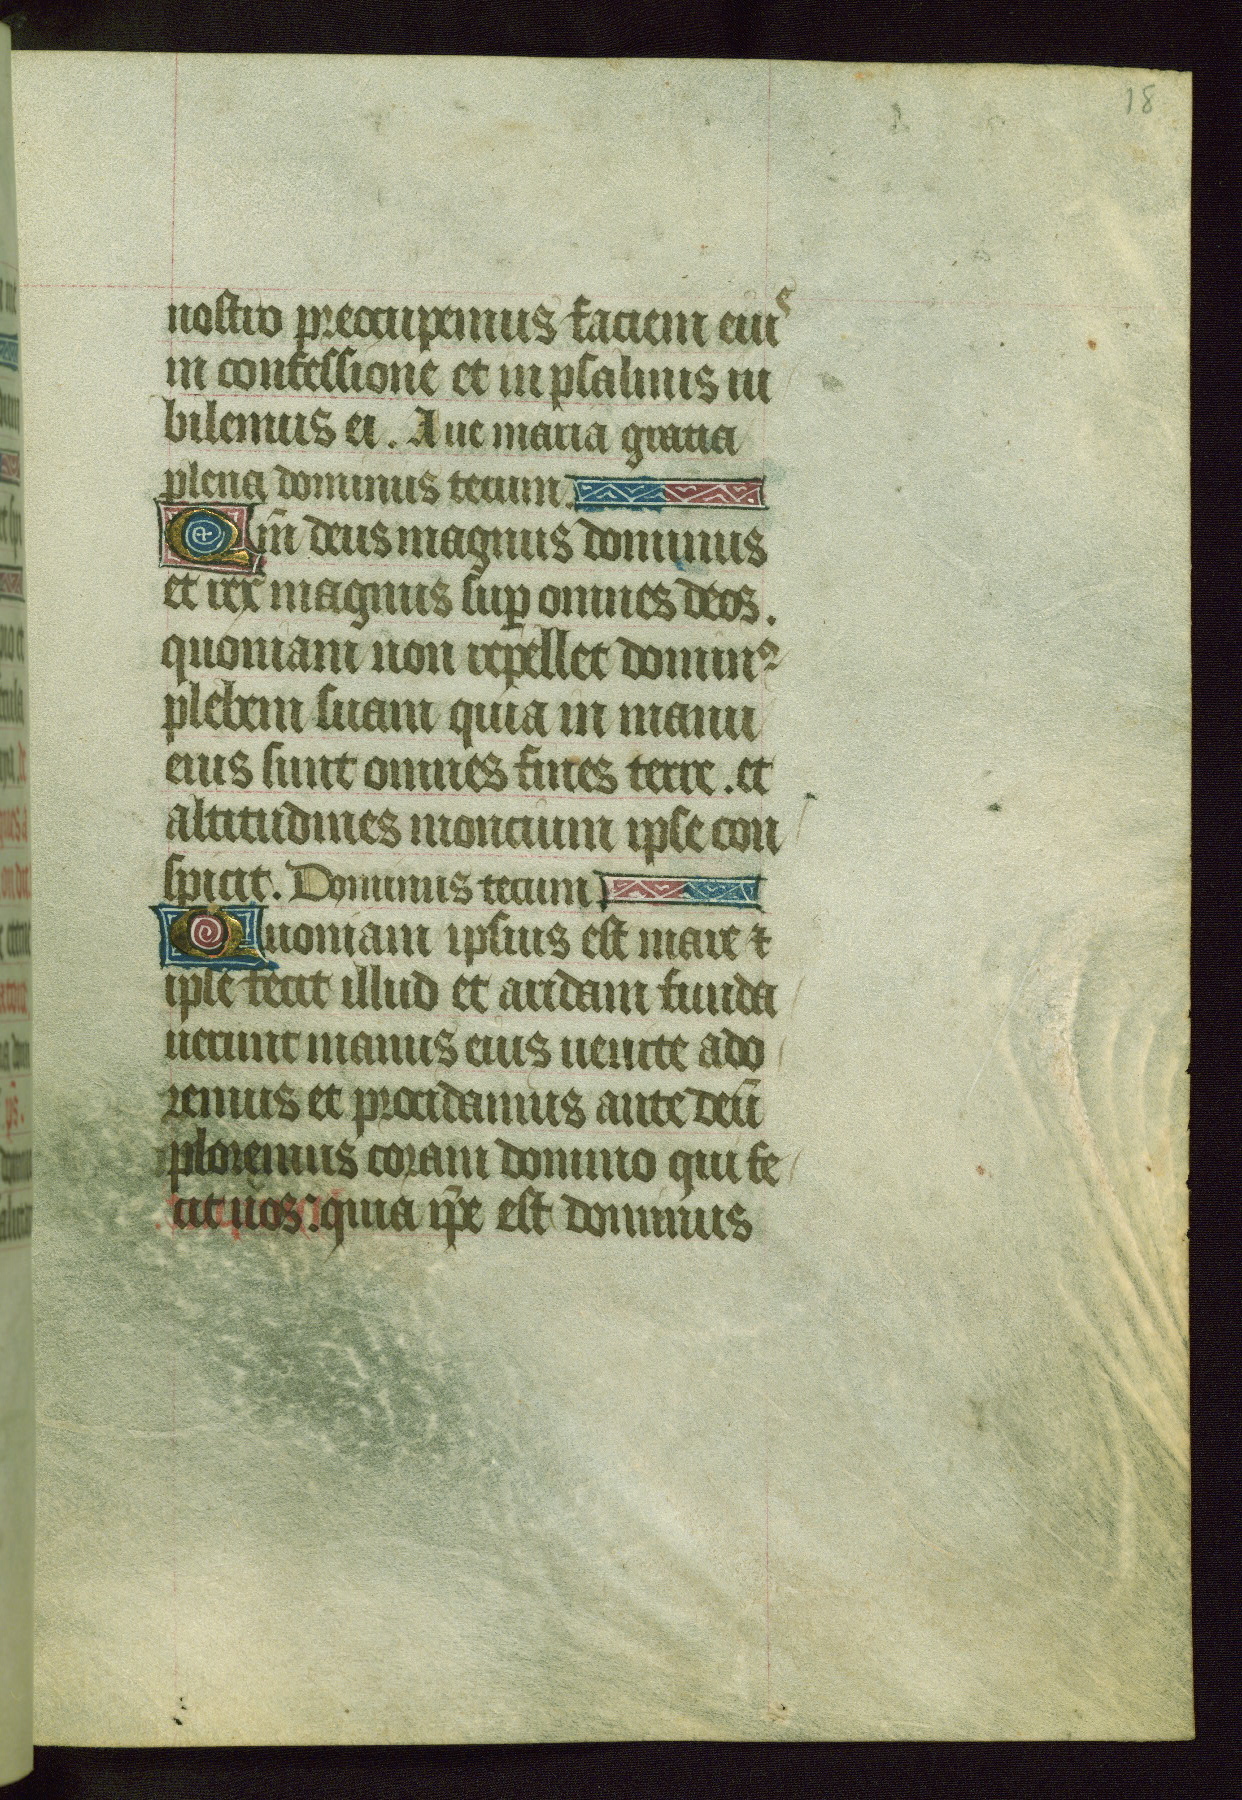 18
nostro preocupemus faciem eius
in confessione et in psalmis iu
bilemus ei. Aue maria gracia
plena dominus tecum.
Qm̄ deus magnus dominus
et rex magnus suꝑ omnes deos.
quoniam non repellet dominꝰ
plebem suam quia in manu
eius sunt omnes fines terre. et
altitudines moncium ipse con
spicit. Dominus tecum
Quoniam ipsius est mare ⁊
ipse fecit illud et aridam funda
uerunt manus eius uenite ado
remus et procidamus ante deū
ploremus coram domino qui fe
cit nos: quia ip̄e est dominus